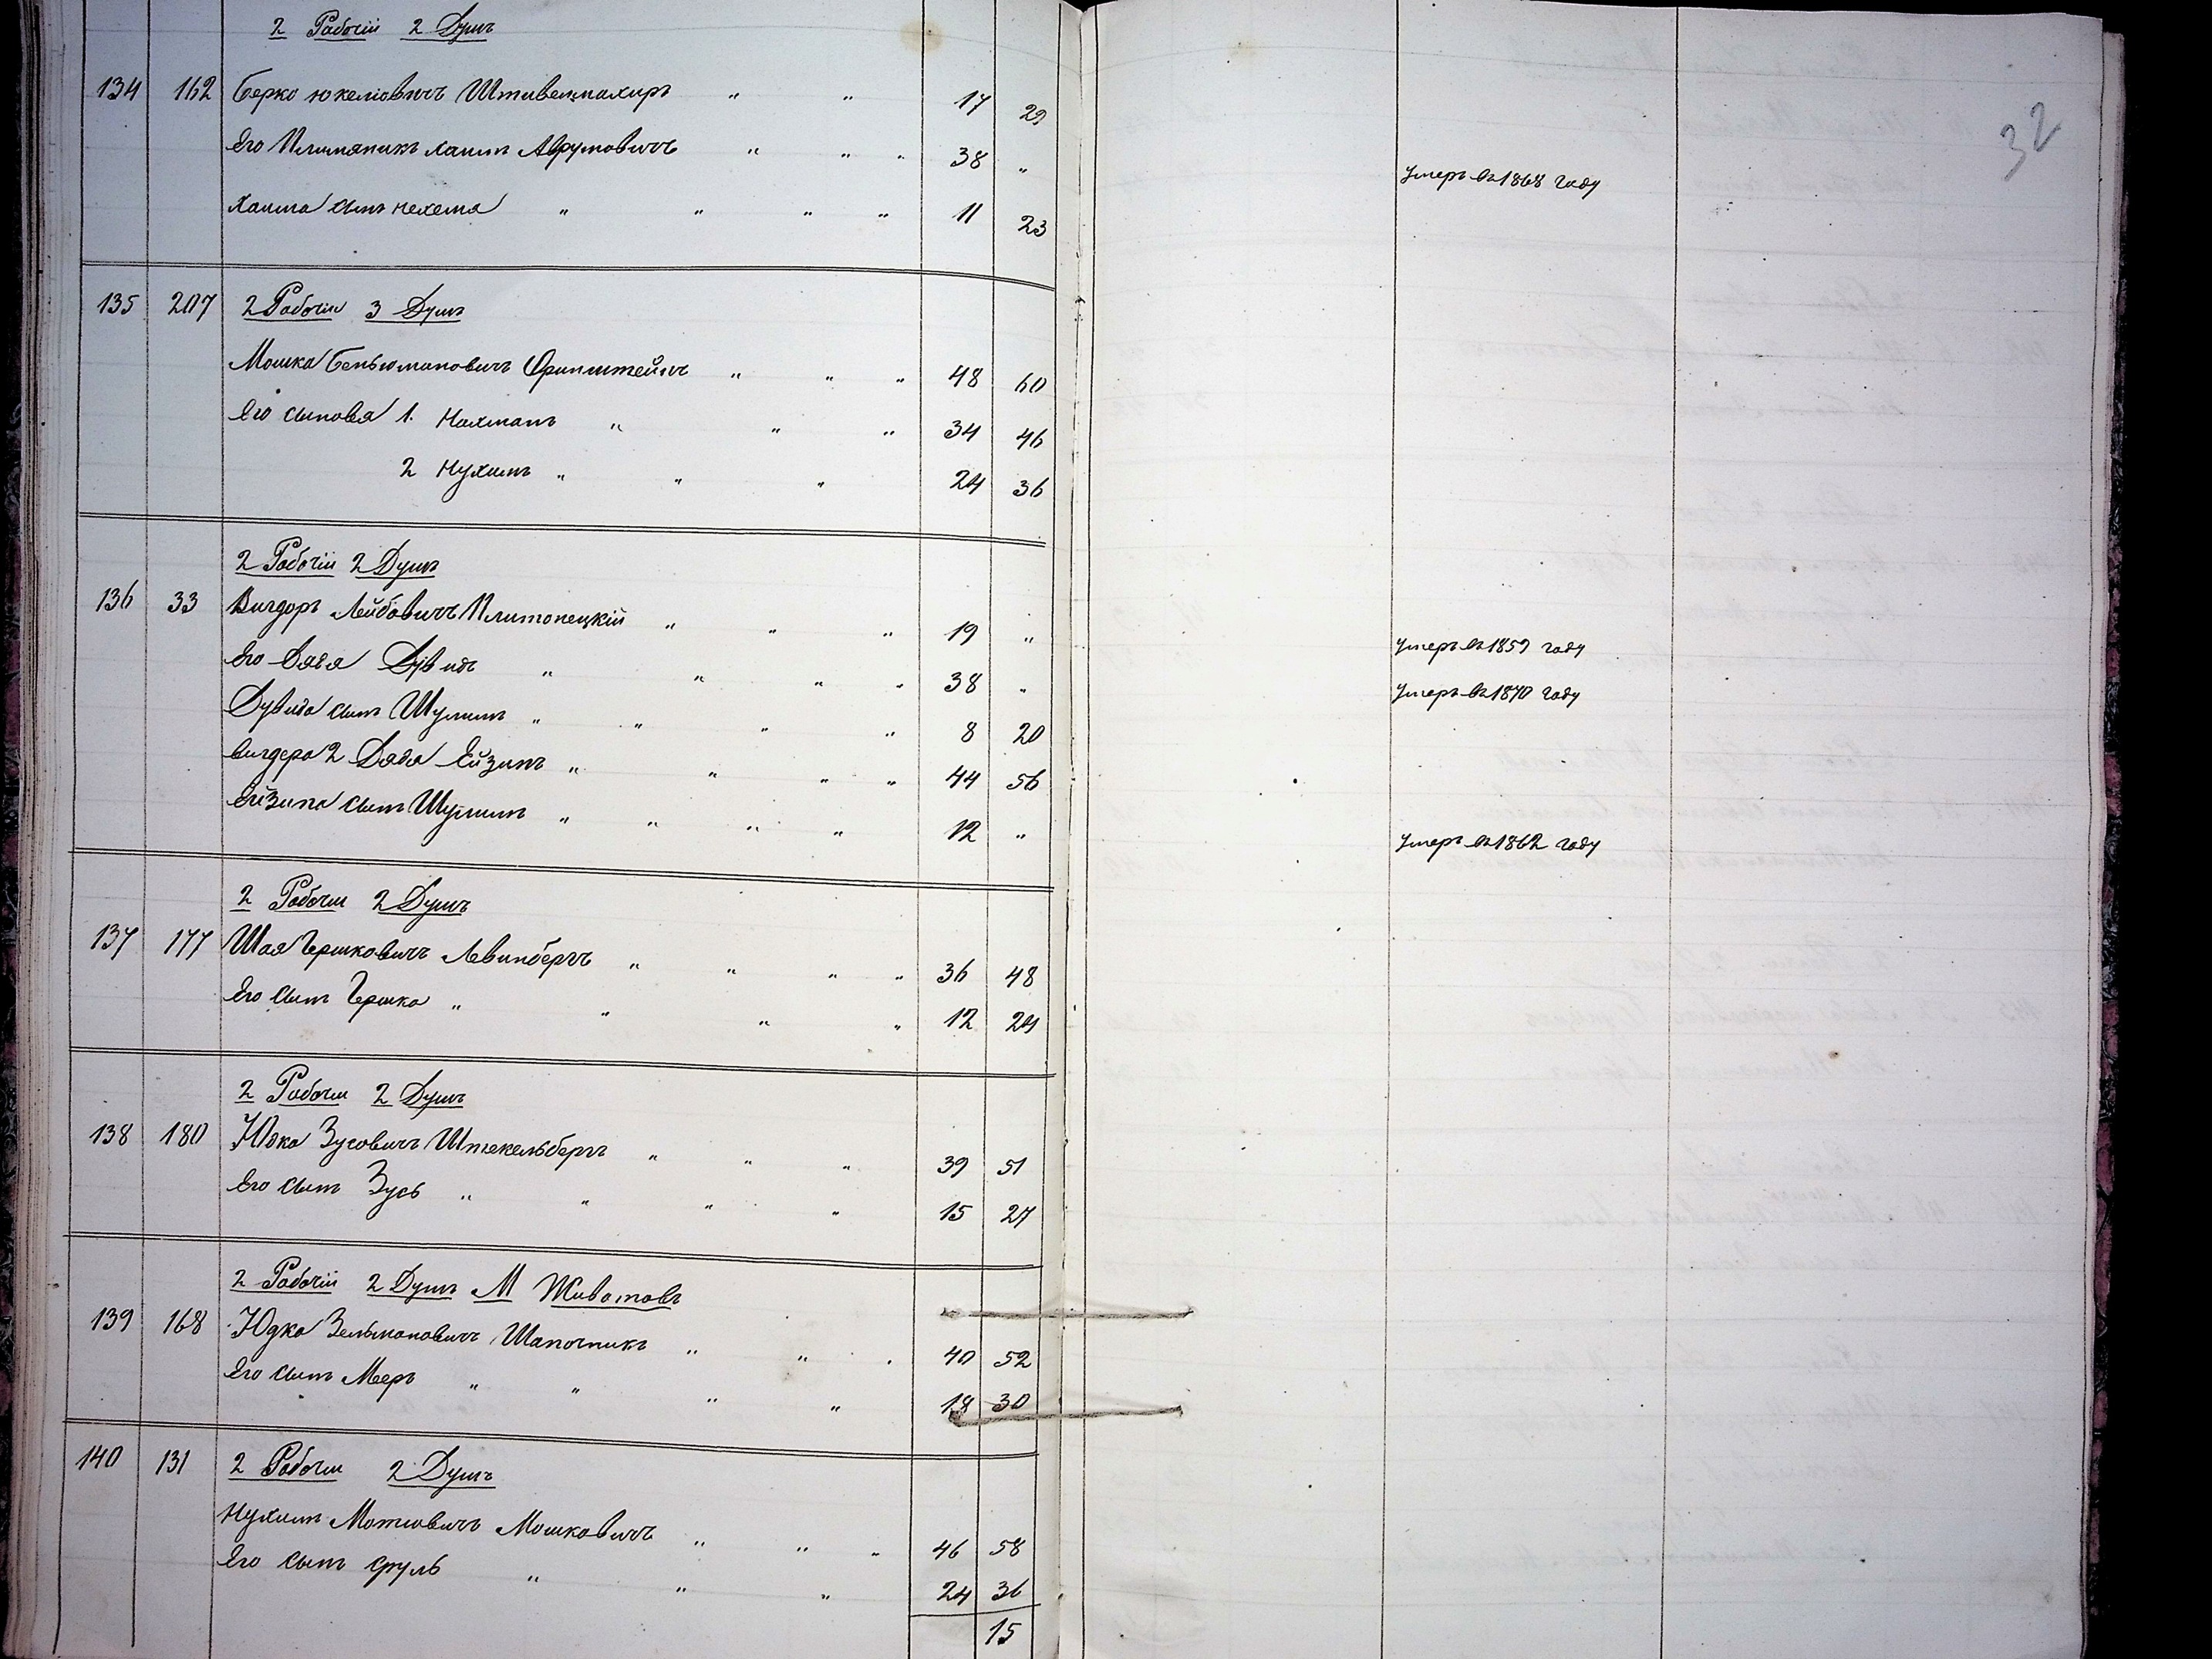 2 Рабочiи 2 Душъ
134 162 Берко Юкелiовичъ Штивельмахиръ " " 17 29
Его Племяникъ Хаимъ Аврумовичъ " " " 38 " Умеръ въ 1868 году
Хаима сынъ Нехемя " " " " 11 23
32
135 207 2 Рабочiи 3 Душъ
Мошка Беньюминовичъ Оринштейнъ " " " 48 60
Его сыновя 1. Нахманъ " " " 34 46
2 Нухимъ " " " 24 36
2 Рабочiи 2 Душъ
136 33 Вигдоръ Лейбовичъ Плитонецкiй " " " 19 " Умеръ въ 1859 году
Его Дядя Дувидъ " " " " 38 " Умеръ въ 1870 году
Дувида сынъ Шулимъ " " " " 8 20
Вигдера 2 Дядя Ейзинъ " " " " 44 56
Ейзина сынъ Шулимъ " " " " 12 " Умеръ въ 1862 году
2 Рабочiи 2 Душъ
137 177 Шая Гершковичъ Левинбергъ " " " " 36 48
Его сынъ Гершко " " " " 12 24
2 Рабочiи 2 Душъ
138 180 Юдка Зусовичъ Штекельбергъ " " " 39 51
Его сынъ Зусь " " " " 15 27
2 Рабочiи 2 Душъ М Животовъ
139 168 Юдка Зельмановичъ Шапочникъ " " " 40 52
Его сынъ Мееръ " " " " 18 30
140 131 2 Рабочiи 2 Душъ
Нухимъ Мотиовичъ Мошковичъ " " " 46 58
Его сынъ Сруль " " " 24 36
15